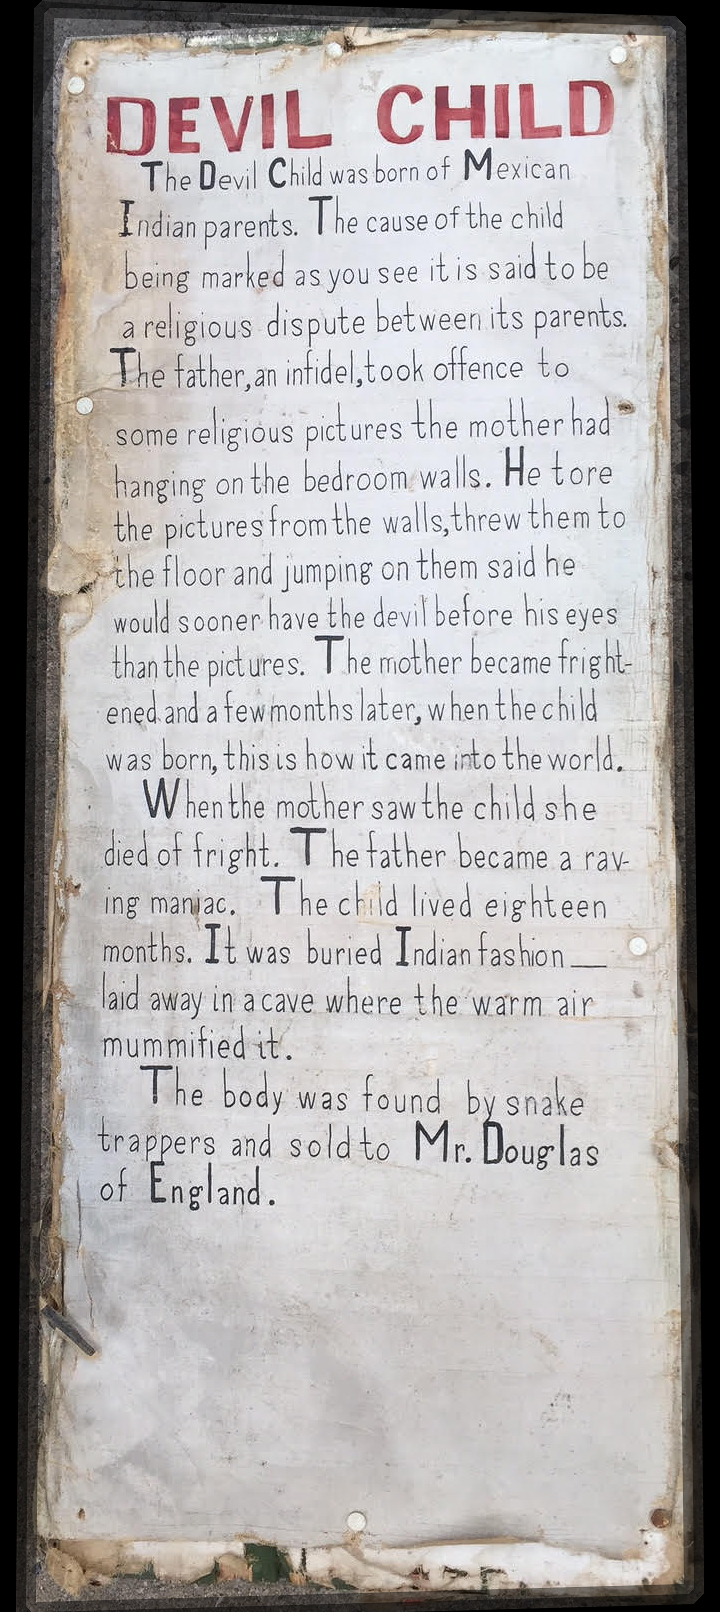 DEVIL CHILD
The Devil Child was born of Mexican
Indian parents. The cause of the child
being marked as you see it is said to be
a religious dispute between its parents.
The father, an infidel, took offence to
some religious pictures the mother had
hanging on the bedroom walls. He tore
the pictures from the walls, threw them to
the floor and jumping on them said he
would sooner have the devil before his eyes
than the pictures. The mother became fright-
ened and a few months later, when the child
was born, this is how it came into the world.
When the mother saw the child she
died of fright. The father became a rav-
ing maniac. The child lived eighteen
months. It was buried Indian fashion—
laid away in a cave where the warm air
mummified it.
The body was found by snake
trappers and sold to Mr. Douglas
of England.